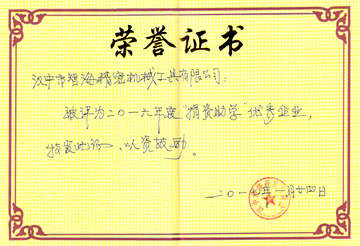 荣誉证书
汉中市智海精密机械工具有限公司:
被评为二〇一六年度“捐资助学”优秀企业,
特发此证,以资鼓励。
二〇一七年一月廿四日